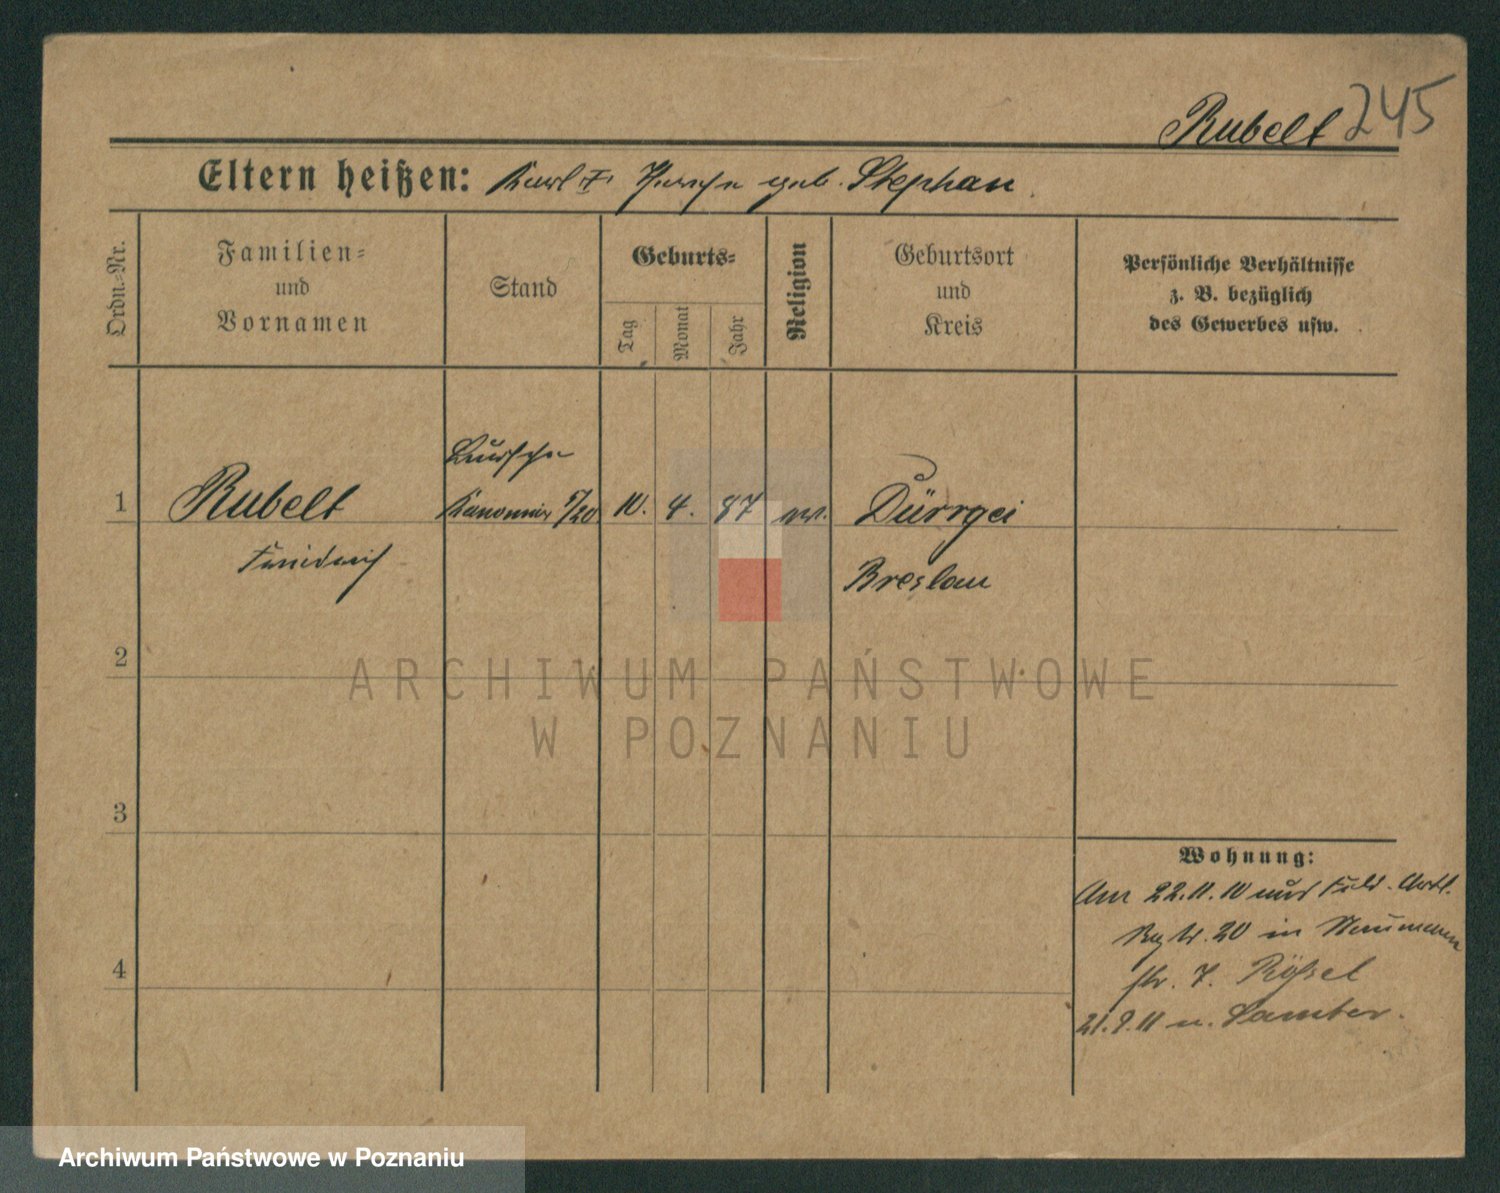 Rubelt 245
Eltern heißen: Karl geb. Stephan
Ordn.-Nr.
Familien-
und
Vornamen
Stand
Geburts-
Tag
Monat
Jahr
Religion
Geburtsort
und
Kreis
Persönliche Verhältnisse
z. B. bezüglich
des Gewerbes usw.
Bursche
1 Rubelt Kanonier 5/20 10. 4. 87 ev. Dürrgoi
Friedrich
Breslau
2
ARCHIWUM PAŃSTWOWE
W POZNANIU
3
Wohnung:
Am 22.11.10 Feld-Artl.
Rgt. 20 in Naumann
4
str. 7. Rößel
21.9.11 n. Samter.
Archiwum Państwowe w Poznaniu